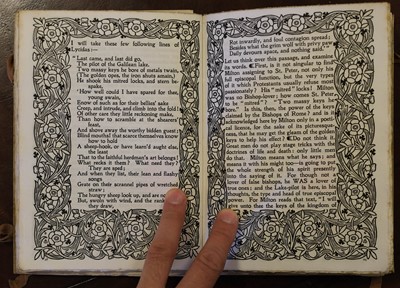 I will take these few following lines of
Lycidas:—
"Last came, and last did go,
The pilot of the Galilean lake.
Two massy keys he bore of metals twain,
(The golden opes, the iron shuts amain,)
He shook his mitred locks, and stern be-
spake,
'How well could I have spared for thee,
young swain,
Enow of such as for their bellies' sake
Creep, and intrude, and climb into the fold!
Of other care they little reckoning make,
Than how to scramble at the shearers'
feast,
And shove away the worthy bidden guest;
Blind mouths! that scarce themselves know
how to hold
A sheep-hook, or have learn'd aught else,
the least
That to the faithful herdman's art belongs!
What recks it them? What need they?
They are sped;
And when they list, their lean and flashy
songs
Grate on their scrannel pipes of wretched
straw;
The hungry sheep look up, and are not fed,
But, swoln with wind, and the rank
they draw,
Rot inwardly, and foul contagion spread;
Besides what the grim wolf with privy paw
Daily devours apace, and nothing said.'"
Let us think over this passage, and examine
its words. First, is it not singular to find
Milton assigning to St. Peter, not only his
full episcopal function, but the very types
of it which Protestants usually refuse most
passionately? His "mitred" locks! Milton
was no Bishop-lover; how comes St. Peter
to be "mitred"? "Two massy keys he
bore." Is this, then, the power of the keys
claimed by the Bishops of Rome? and is it
acknowledged here by Milton only in a poeti-
cal licence, for the sake of its picturesque-
ness, that he may get the gleam of the golden
keys to help his effect? Do not think it.
Great men do not play stage tricks with the
doctrines of life and death: only little men
do that. Milton means what he says; and
means it with his might too—is going to put
the whole strength of his spirit presently
into the saying of it. For though not a
lover of false bishops, he WAS a lover of
true ones; and the Lake-pilot is here, in his
thoughts, the type and head of true episcopal
power. For Milton reads that text, "I will
give unto thee the keys of the kingdom of